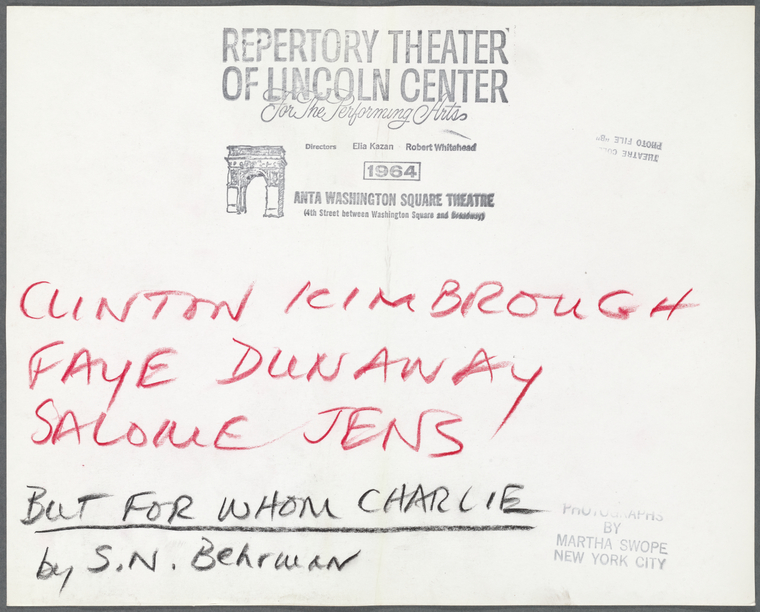 REPERTORY THEATER
OF LINCOLN CENTER
For The Performing Arts
Directors Elia Kazan Robert Whitehead
1964
ANTA WASHINGTON SQUARE THEATRE
(4th Street between Washington Square and Broadway)
THEATRE
PHOTO FILE "B"
CLINTON KIMBROUGH
FAYE DUNAWAY
SALOME JENS
BUT FOR WHOM CHARLIE
by S.N. Behrman
PHOTOGRAPHS
BY
MARTHA SWOPE
NEW YORK CITY